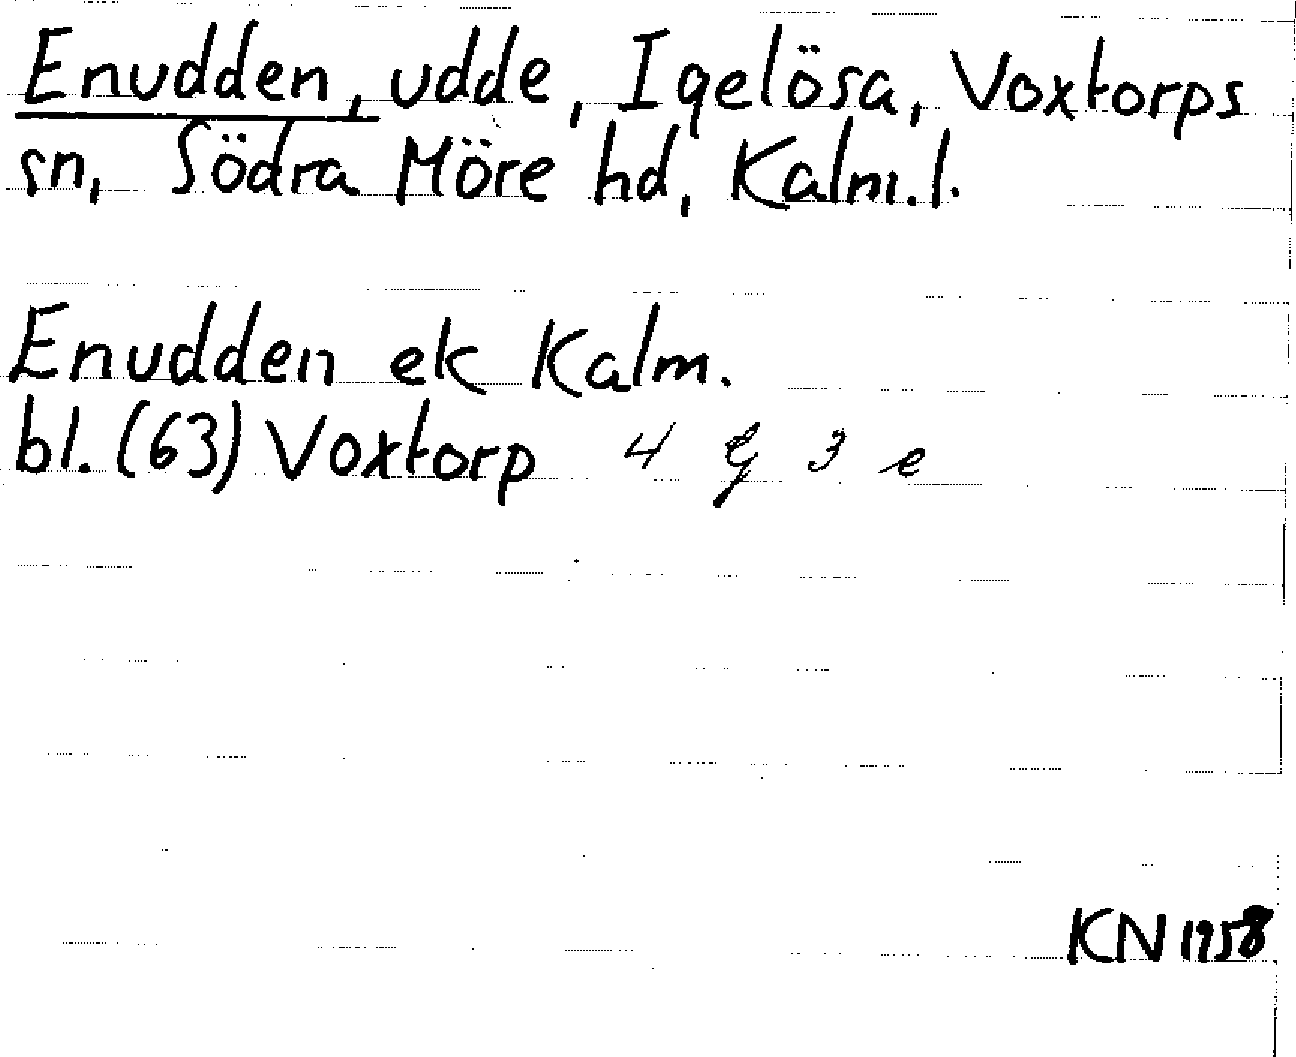 Enudden, udde, Igelösa, Voxtorps
sn, Södra Möre hd, Kalm.l.
Enudden ek Kalm.
bl. (63) Voxtorp 4 G 3 e
KN 1958